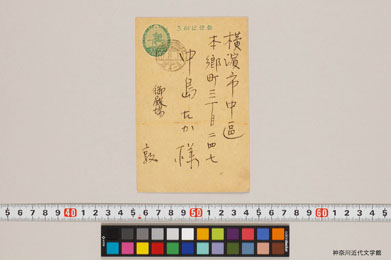 きか便郵
横濱市中區
本郷町三丁目二四七
中島たか様
御殿場
敦
5 6 7 8 9 40 1 2 3 4 5 6 7 8 9 50 1 2 3 4 5 6 7 8 9 60 1 2 3 4 5
神奈川近代文学館